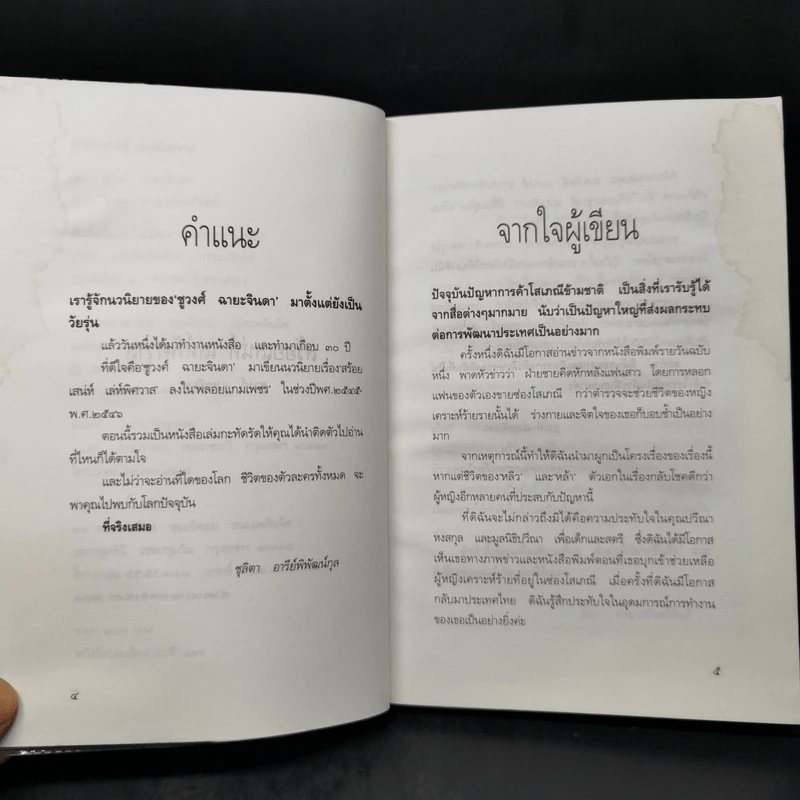 คำแนะ
เรารู้จักนวนิยายของ'ชูวงศ์ ฉายะจินดา' มาตั้งแต่ยังเป็น
วัยรุ่น
แล้ววันหนึ่งได้มาทำงานหนังสือ และทำมาเกือบ ๓๐ ปี
ที่ดีใจคือ'ชูวงศ์ ฉายะจินดา' มาเขียนนวนิยายเรื่อง'สร้อย
เสน่ห์ เล่ห์พิศวาส' ลงใน'พลอยแกมเพชร' ในช่วงปีพศ.๒๕๔๕-
พ.ศ.๒๕๔๖
ตอนนี้รวมเป็นหนังสือเล่มกะทัดรัดให้คุณได้นำติดตัวไปอ่าน
ที่ไหนก็ได้ตามใจ
และไม่ว่าจะอ่านที่ใดของโลก ชีวิตของตัวละครทั้งหมด จะ
พาคุณไปพบกับโลกปัจจุบัน
ที่จริงเสมอ
ชุลิตา อารีย์พิพัฒน์กุล
๔
จากใจผู้เขียน
ปัจจุบันปัญหาการค้าโสเภณีข้ามชาติ เป็นสิ่งที่เรารับรู้ได้
จากสื่อต่างๆมากมาย นับว่าเป็นปัญหาใหญ่ที่ส่งผลกระทบ
ต่อการพัฒนาประเทศเป็นอย่างมาก
ครั้งหนึ่งดิฉันมีโอกาสอ่านข่าวจากหนังสือพิมพ์รายวันฉบับ
หนึ่ง พาดหัวข่าวว่า ฝ่ายชายคิดหักหลังแฟนสาว โดยการหลอก
แฟนของตัวเองขายซ่องโสเภณี กว่าตำรวจจะช่วยชีวิตของหญิง
เคราะห์ร้ายรายนั้นได้ ร่างกายและจิตใจของเธอก็บอบช้ำเป็นอย่าง
มาก
จากเหตุการณ์นี้ทำให้ดิฉันนำมาผูกเป็นโครงเรื่องของเรื่องนี้
หากแต่ชีวิตของ'หลิว' และ'หล้า' ตัวเอกในเรื่องกลับโชคดีกว่า
ผู้หญิงอีกหลายคนที่ประสบกับปัญหานี้
ที่ดิฉันจะไม่กล่าวถึงมิได้คือความประทับใจในคุณปวีณา
หงสกุล และมูลนิธิปวีณา เพื่อเด็กและสตรี ซึ่งดิฉันได้มีโอกาส
เห็นเธอทางภาพข่าวและหนังสือพิมพ์ตอนที่เธอบุกเข้าช่วยเหลือ
ผู้หญิงเคราะห์ร้ายที่อยู่ในซ่องโสเภณี เมื่อครั้งที่ดิฉันมีโอกาส
กลับมาประเทศไทย ดิฉันรู้สึกประทับใจในอุดมการณ์การทำงาน
ของเธอเป็นอย่างยิ่งค่ะ
๕